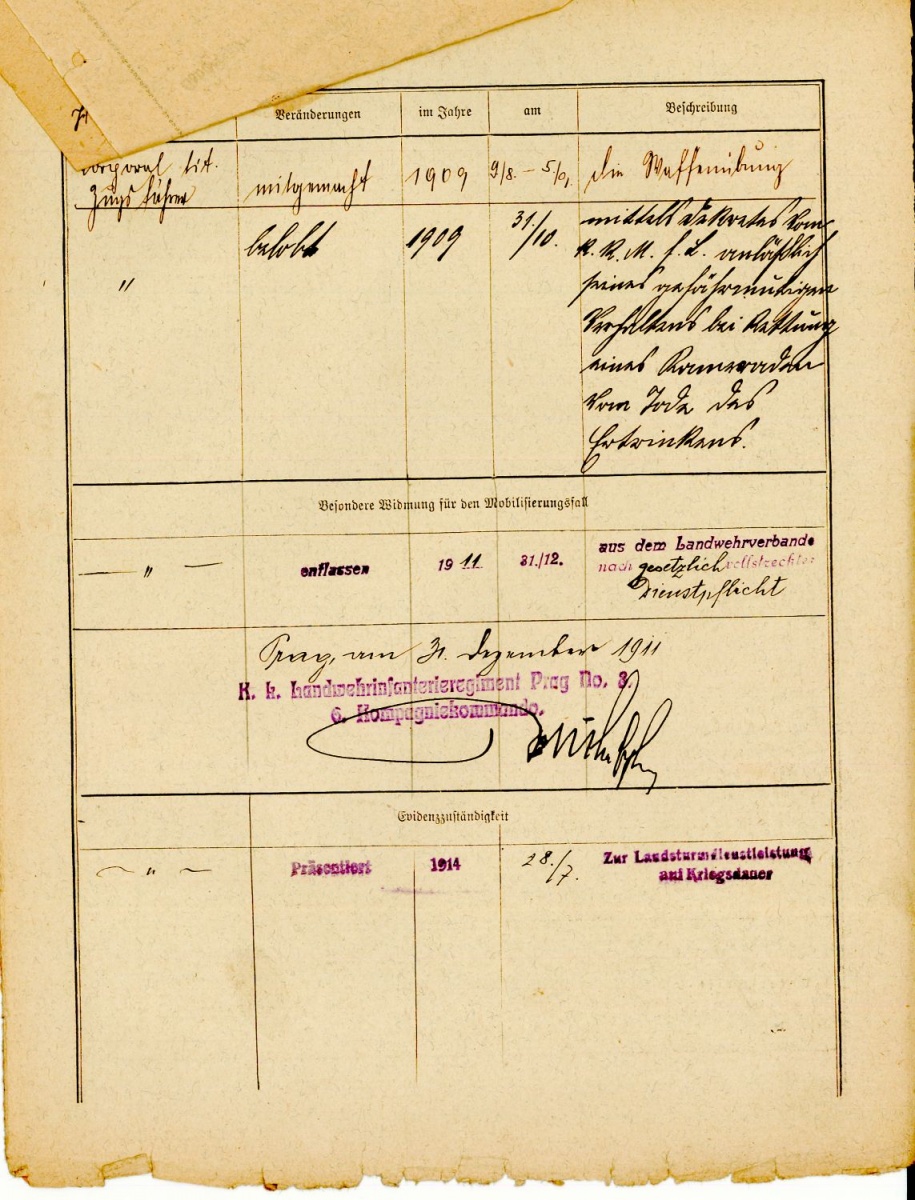 Veränderungen im Jahre am Beschreibung
Corporal tit. mitgemacht 1909 9/8. – 5/9. die Waffenübung
Zugsführer
" belobt 1909 31/10. mittels Dekretes vom
K. K. M. f. L. anläßlich
seines
Verhaltens bei Rettung
eines Kameraden
vom Tode des
Ertrinkens.
Besondere Widmung für den Mobilisierungsfall
— " — entlassen 1911 31./12. aus dem Landwehrverbande
nach gesetzlich vollstreckter
Dienstpflicht
Prag, am 31. Dezember 1911
K. k. Landwehrinfanterieregiment Prag No. 8.
6. Kompagniekommando.
Evidenzzuständigkeit
~ " ~ Präsentiert 1914 28./7. Zur Landsturmdienstleistung
auf Kriegsdauer